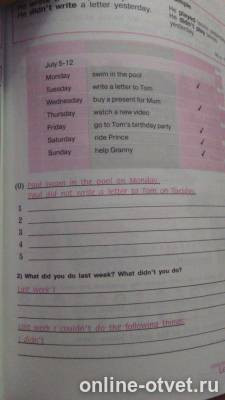 He didn't write a letter yesterday.
He played
He didn't play
yesterday
July 5-12
Monday swim in the pool
Tuesday write a letter to Tom
Wednesday buy a present for Mum
Thursday watch a new video
Friday go to Tom's birthday party
Saturday ride Prince
Sunday help Granny
(0) Paul swam in the pool on Monday.
Paul did not write a letter to Tom on Tuesday.
1
2
3
4
5
2) What did you do last week? What didn't you do?
Last week I
Last week I couldn't do the following things:
I didn't
online-otvet.ru